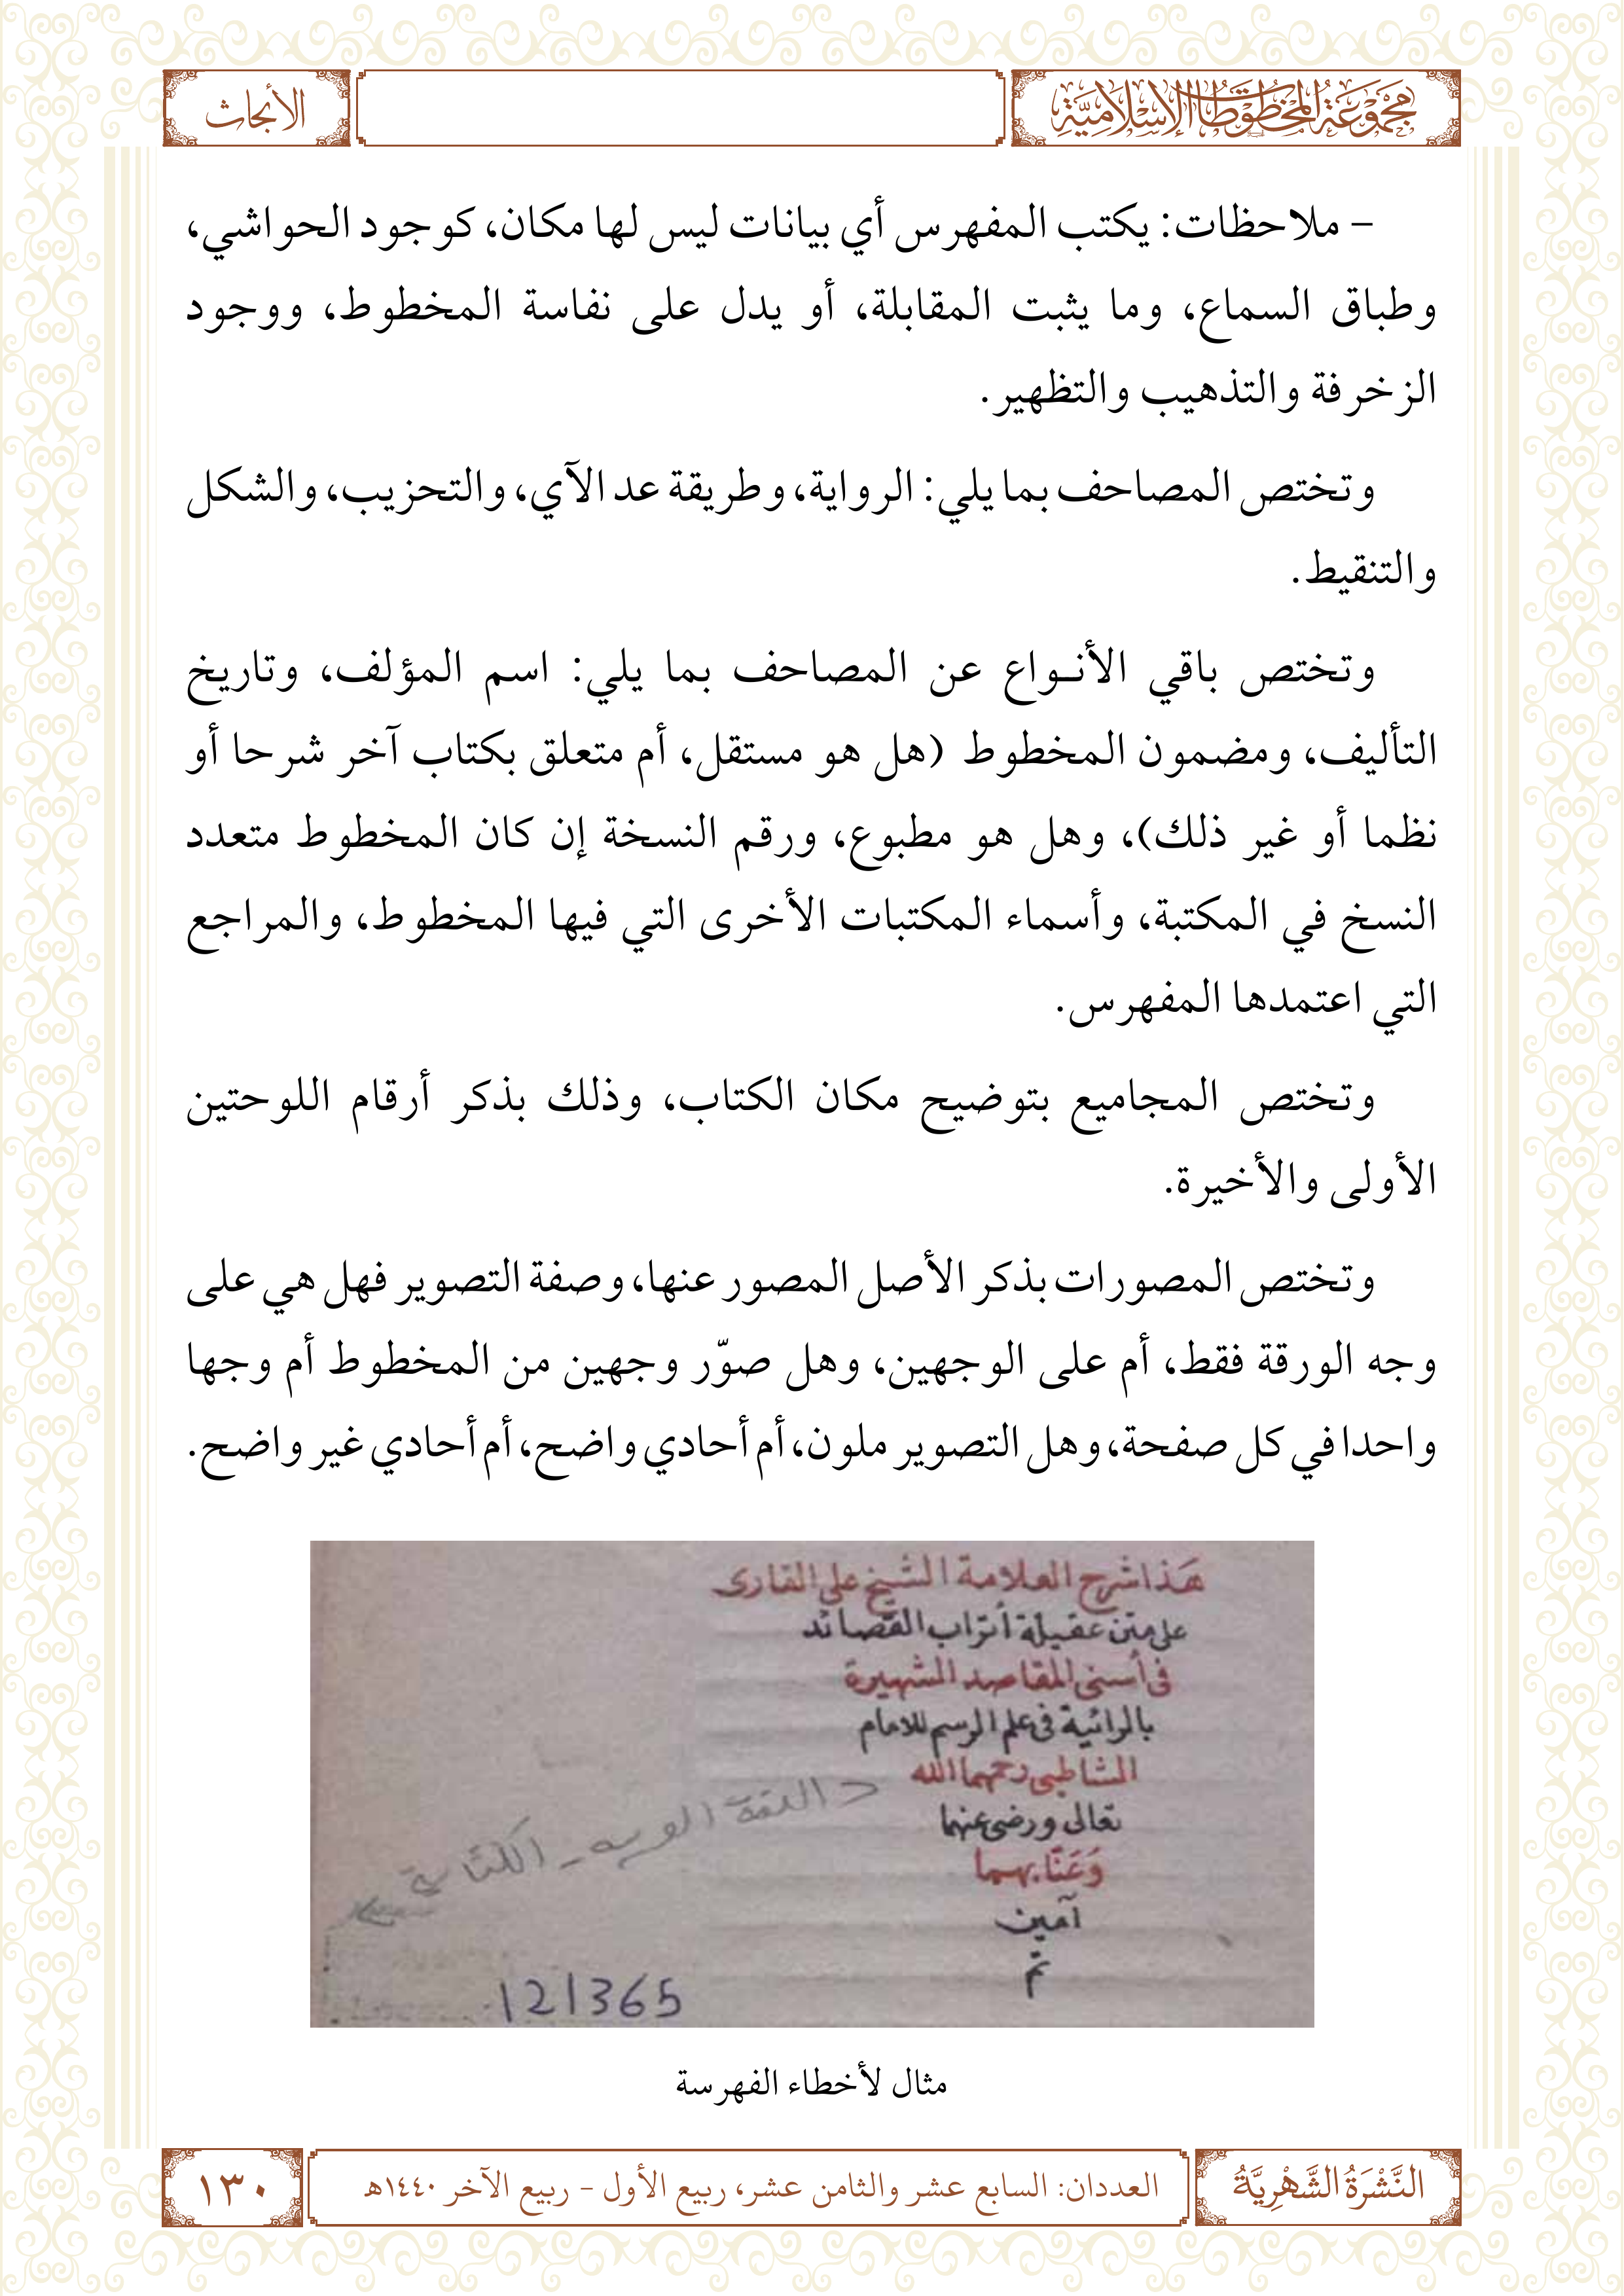 مَجْمُوْعَةُ المَخْطُوْطَاتُ الإِسْلَامِيَّةِ
الأبحاث
– ملاحظات: يكتب المفهرس أي بيانات ليس لها مكان، كوجود الحواشي،
وطباق السماع، وما يثبت المقابلة، أو يدل على نفاسة المخطوط، ووجود
الزخرفة والتذهيب والتظهير.
وتختص المصاحف بما يلي: الرواية، وطريقة عد الآي، والتحزيب، والشكل
والتنقيط.
وتختص باقي الأنــواع عن المصاحف بما يلي: اسم المؤلف، وتاريخ
التأليف، ومضمون المخطوط (هل هو مستقل، أم متعلق بكتاب آخر شرحا أو
نظما أو غير ذلك)، وهل هو مطبوع، ورقم النسخة إن كان المخطوط متعدد
النسخ في المكتبة، وأسماء المكتبات الأخرى التي فيها المخطوط، والمراجع
التي اعتمدها المفهرس.
وتختص المجاميع بتوضيح مكان الكتاب، وذلك بذكر أرقام اللوحتين
الأولى والأخيرة.
وتختص المصورات بذكر الأصل المصور عنها، وصفة التصوير فهل هي على
وجه الورقة فقط، أم على الوجهين، وهل صوّر وجهين من المخطوط أم وجها
واحدا في كل صفحة، وهل التصوير ملون، أم أحادي واضح، أم أحادي غير واضح.
هَذا شرح العلامة الشيخ على القارى
على متن عقيلة أتراب القصائد
فى أسنى المقاصد الشهيرة
بالرائية فى علم الرسم للامام
الشاطبى رحمهما الله
تعالى ورضى عنهما
وَعَنَّا بهما
آمين
تم
اللغة العربيه - الكتابة
121365
مثال لأخطاء الفهرسة
النَّشْرَةُ الشَّهْرِيَّةُ
العددان: السابع عشر والثامن عشر، ربيع الأول - ربيع الآخر ١٤٤٠هـ
١٣٠